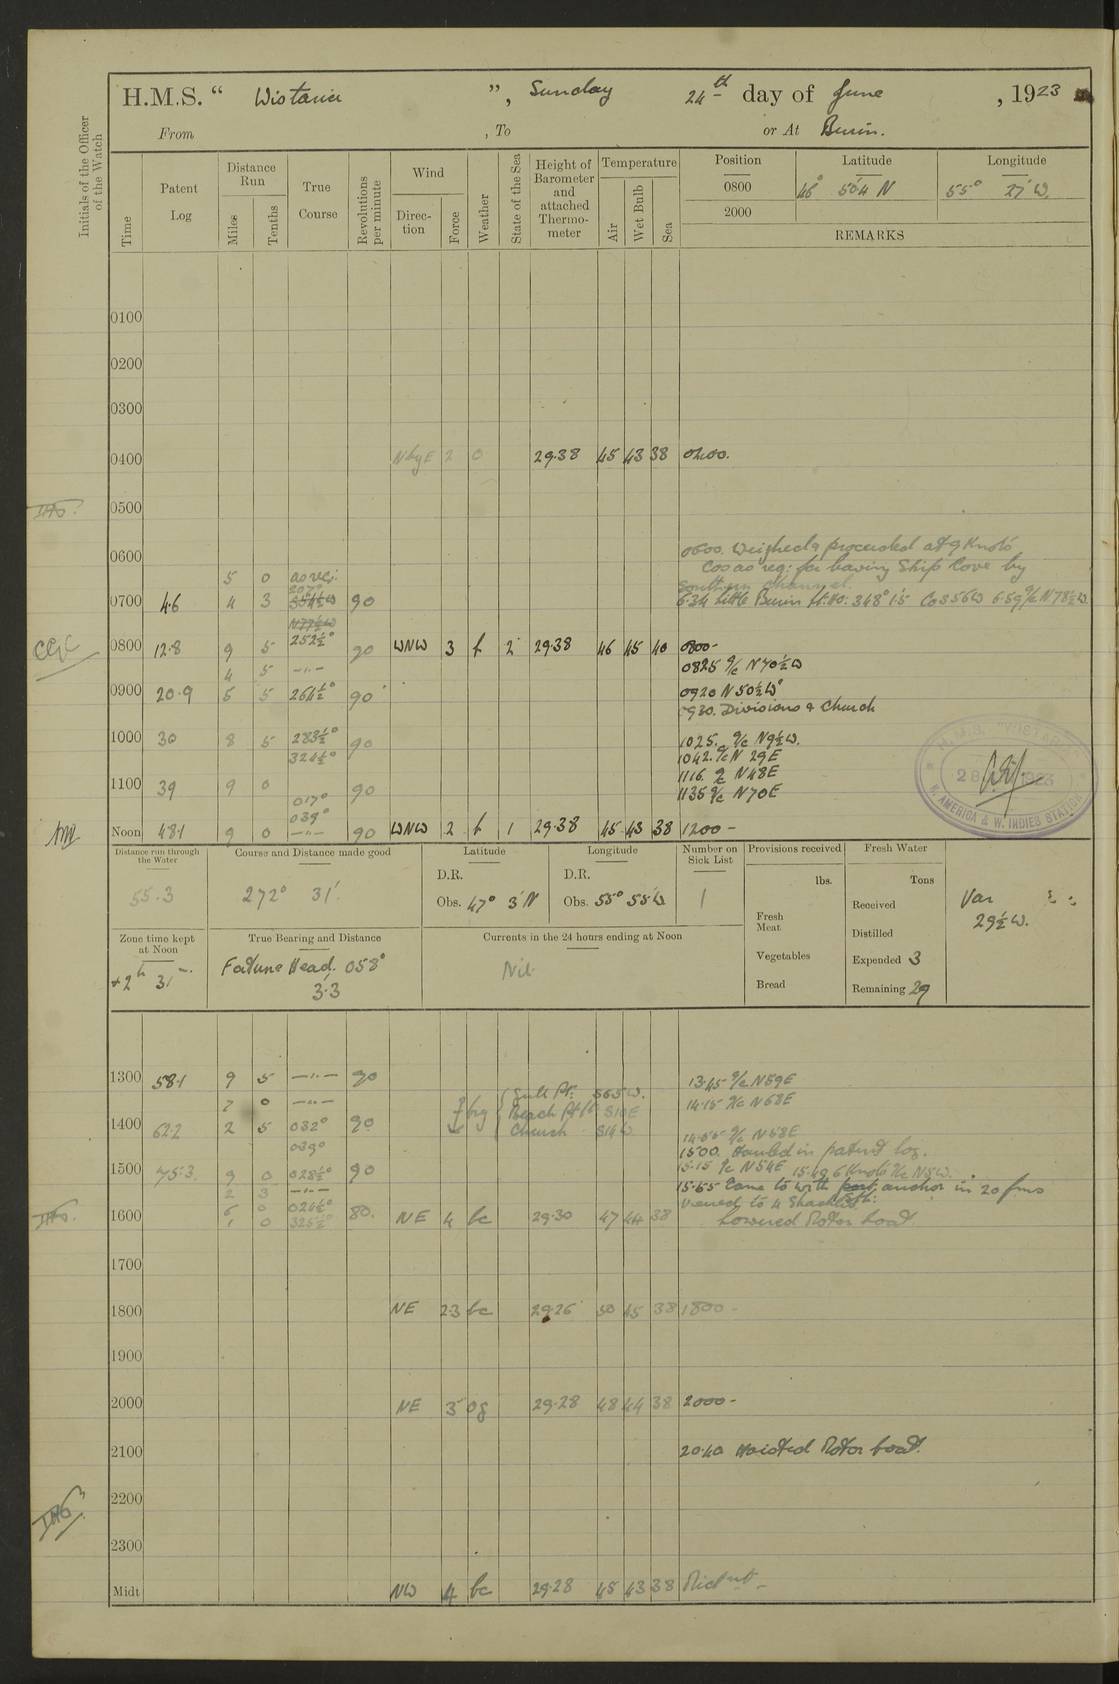 H.M.S. “ Wistaria ”, Sunday 24th day of June, 1923
From , To or At Burin.
Initials of the Officer of the Watch
Time
Patent Log
Distance Run
Miles
Tenths
True Course
Revolutions per minute
Wind
Direction
Force
Weather
State of the Sea
Height of Barometer and attached Thermometer
Temperature
Air
Wet Bulb
Sea
Position Latitude Longitude
0800 46° 50'.4 N 55° 27' W.
2000
REMARKS
0100
0200
0300
0400 NbyE 2 o 29.38 45 43 38 0400.
0500
0600 0600. Weighed & proceeded at 9 Knots
Cos as req: for leaving Ship Cove by
5 0 as req: Southern Channel.
0700 4.6 4 3 90 6.34 Little Burin Lt. Ho: 348° 1'.5 Co S56W 6.59 a/c N78½W
0800 12.8 9 5 252½° 90 WNW 3 f 2 29.38 46 45 40 0800-
4 5 -"- 0825 a/c N70½W
0900 20.9 5 5 264½° 90 0920 N50½W
0930. Divisions & Church
1000 30 8 5 283½° 90 1025. a/c N9½W.
324½° 1042. a/c N 29E
1100 39 9 0 90 1116 a/c N48E
017° 1135 a/c N70E
039°
Noon 48.1 9 0 -"- 90 WNW 2 f 1 29.38 45 43 38 1200-
H.M.S. "WISTARIA"
28 1923
N. AMERICA & W. INDIES STATION
Distance run through the Water
55.3
Course and Distance made good
272° 31'.
Latitude
D.R.
Obs. 47° 3' N
Longitude
D.R.
Obs. 55° 55' W
Number on Sick List
1
Provisions received
lbs.
Fresh Meat
Vegetables
Bread
Fresh Water
Tons
Received
Distilled
Expended 3
Remaining 29
Var
29½ W.
Zone time kept at Noon
+2h 31m.
True Bearing and Distance
Fortune Head. 058°
3'.3
Currents in the 24 hours ending at Noon
Nil
1300 58.1 9 5 -"- 90 13.45 a/c N59E
7 0 -"- Gull Pt: S65W. 14.15 a/c N68E
1400 62.2 2 5 032° 90 brg Beach Pt S10E
Church S14W 14.55 a/c N58E
039° 1500. Hauled in patent log.
1500 75.3 9 0 028½° 90 15.15 a/c N54E 15.49 6 Knots a/c N5W.
2 3 -"- 15.55 Came to with port anchor in 20 fms
6 0 024½° veered to 4 Shackles.
1600 1 0 325½° 80. NE 4 bc 29.30 47 44 38 Lowered Motor boat
1700
1800 NE 2.3 bc 29.26 50 45 38 1800-
1900
2000 NE 3 og 29.28 48 44 38 2000-
2100 20.40 Hoisted Motor boat.
2200
2300
Midt NW 4 bc 29.28 45 43 38 Midnt-